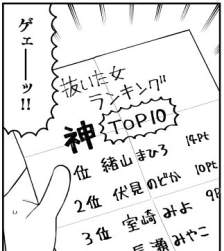 ゲェーーッ!!
抜いた女
ランキング
TOP10
神
位 緒山まひろ 14Pt
2位 伏見のどか 10Pt
3位 室崎みよ 9P
長瀬みやこ